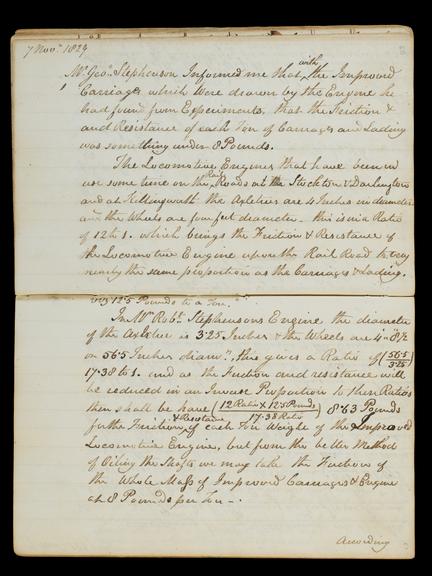 7 Novr. 1829
Mr. Geo. Stephenson Informed me that, with the Improved
Carriages which were drawn by the Engine he
had found from Experiments, that the Friction &
and Resistance of each Ton of Carriages and Lading
was something under 8 Pounds.
The Locomotive Engines that have been in
use some time on the Rail Roads at the Stockton & Darlington
and at Killingworth the Axletrees are 4 Inches in diameter
and the Wheels are four feet diameter - this is in a Ratio
of 12 to 1. which brings the Friction & Resistance of
the Locomotive Engine upon the Rail Road to very
nearly the same proportion as the Carriages & Lading.
viz 12.5 Pounds to a Ton.
In Mr. Robt. Stephensons Engine the diameter
of the Axletree is 3.25 Inches & the Wheels are 4 - 8½
or 56.5 Inches diamr., this gives a Ratio of (56.5/3.25)
17.38 to 1. and as the Friction and resistance will
be reduced in an Inverse Proportion to their Ratios
then shall be have (12 Ratio x 12.5 Pounds / 17.38 Ratio) 8.63 Pounds
for the Friction & Resistance of each Ton Weight of the Improved
Locomotive Engine, but from the better Method
of Oiling the Shafts we may take the Friction of
the Whole Mass of Improved Carriages & Engine
at 8 Pounds per Ton -.
According